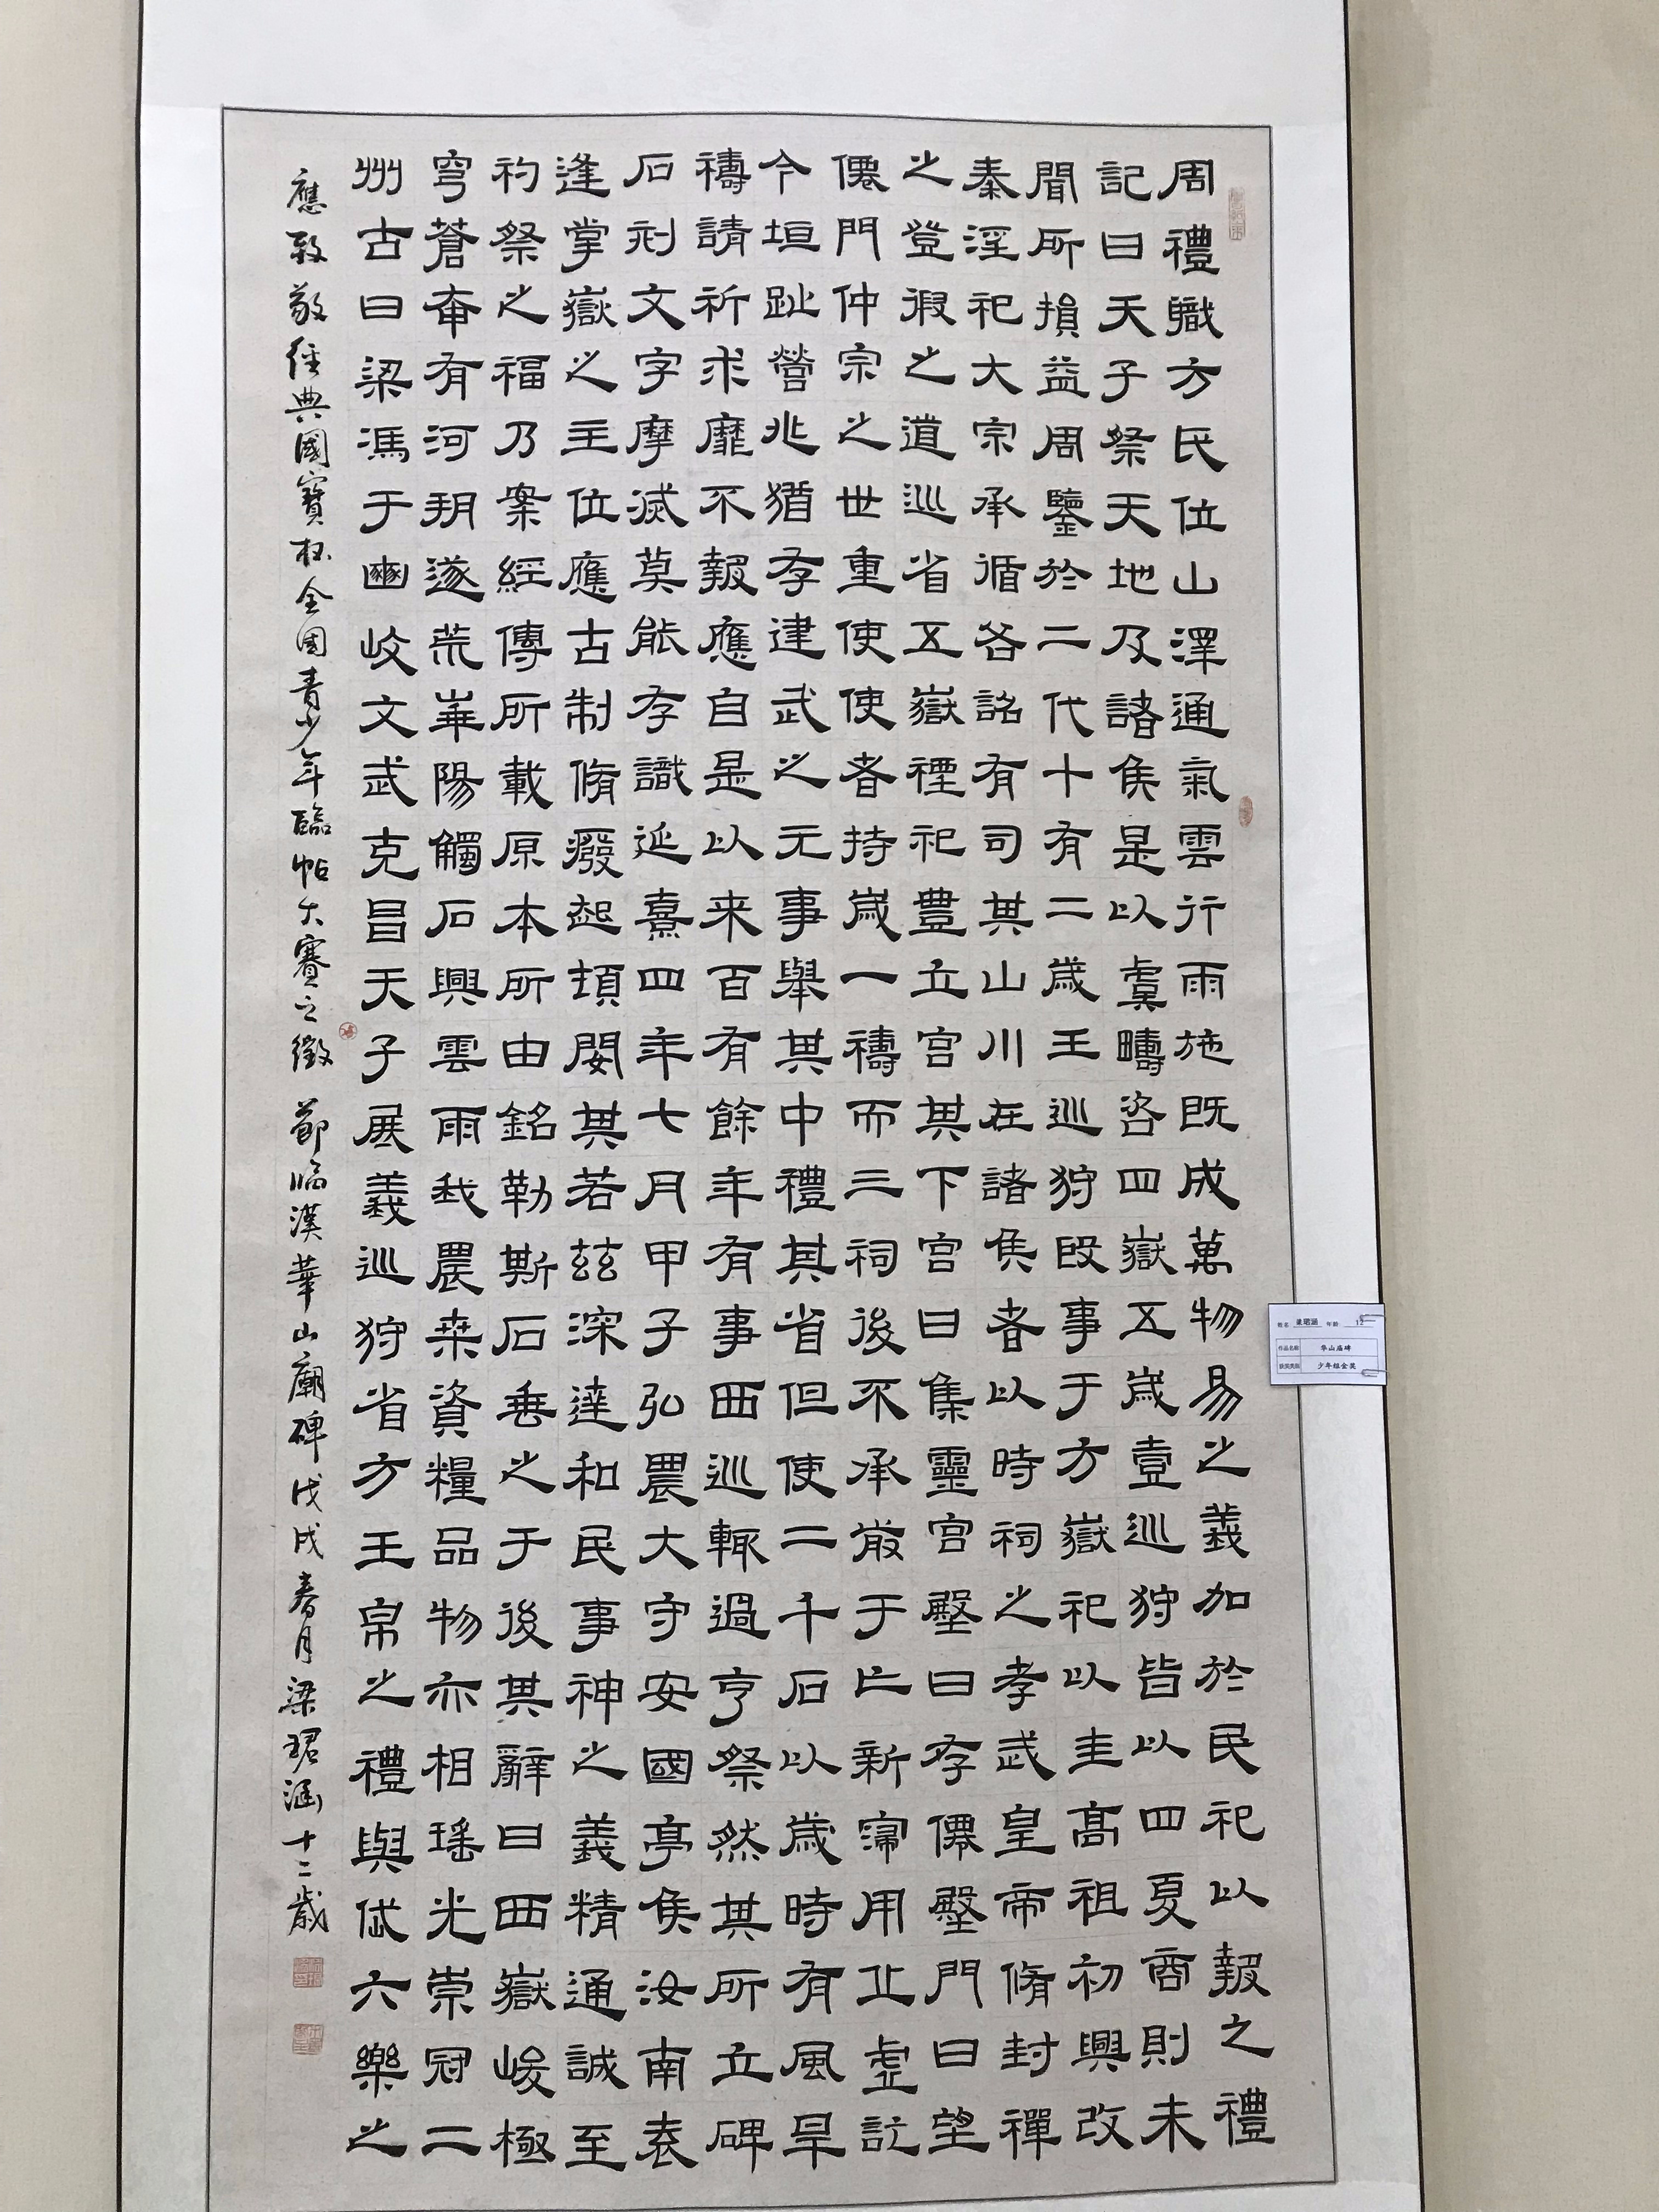 周禮職方氏位山澤通氣雲行雨施既成萬物易之義加於民祀以報之禮
記曰天子祭天地及諸侯是以虞疇咨四嶽五歲壹巡狩皆以四夏商則未
聞所損益周鑒於二代十有二歲王巡狩殷事于方嶽祀以圭高祖初興改
秦淫祀大宗承循各詔有司其山川在諸侯者以時祠之孝武皇帝脩封禪
之登假之道巡省五嶽禋祀豐立宮其下宮曰集靈宮壂曰存僊壂門曰望
僊門仲宗之世重使使者持歲一禱而三祠後不承前于亡新寖用丘虛訖
今垣趾營兆猶存建武之元事舉其中禮其省但使二千石以歲時有風旱
禱請祈求靡不報應自是以来百有餘年有事西巡輒過亨祭然其所立碑
石刻文字摩滅莫能存識延熹四年七月甲子弘農大守安國亭侯汝南袁
逢掌嶽之主位應古制脩癈起頓閔其若茲深達和民事神之義精通誠至
礿祭之福乃案經傳所載原本所由銘勒斯石垂之于後其辭曰西嶽峻極
穹蒼奄有河朔遂荒華陽觸石興雲雨我農桒資糧品物亦相瑤光崇冠二
州古曰梁馮于豳岐文武克昌天子展義巡狩省方王帛之禮與岱六樂之
應致敬經典國寶杯全国青少年臨帖大賽之徵 節臨漢華山廟碑 戊戌春月梁珺涵十二歲
姓名 梁珺涵 年龄 12
作品名称 华山庙碑
获奖类别 少年组金奖